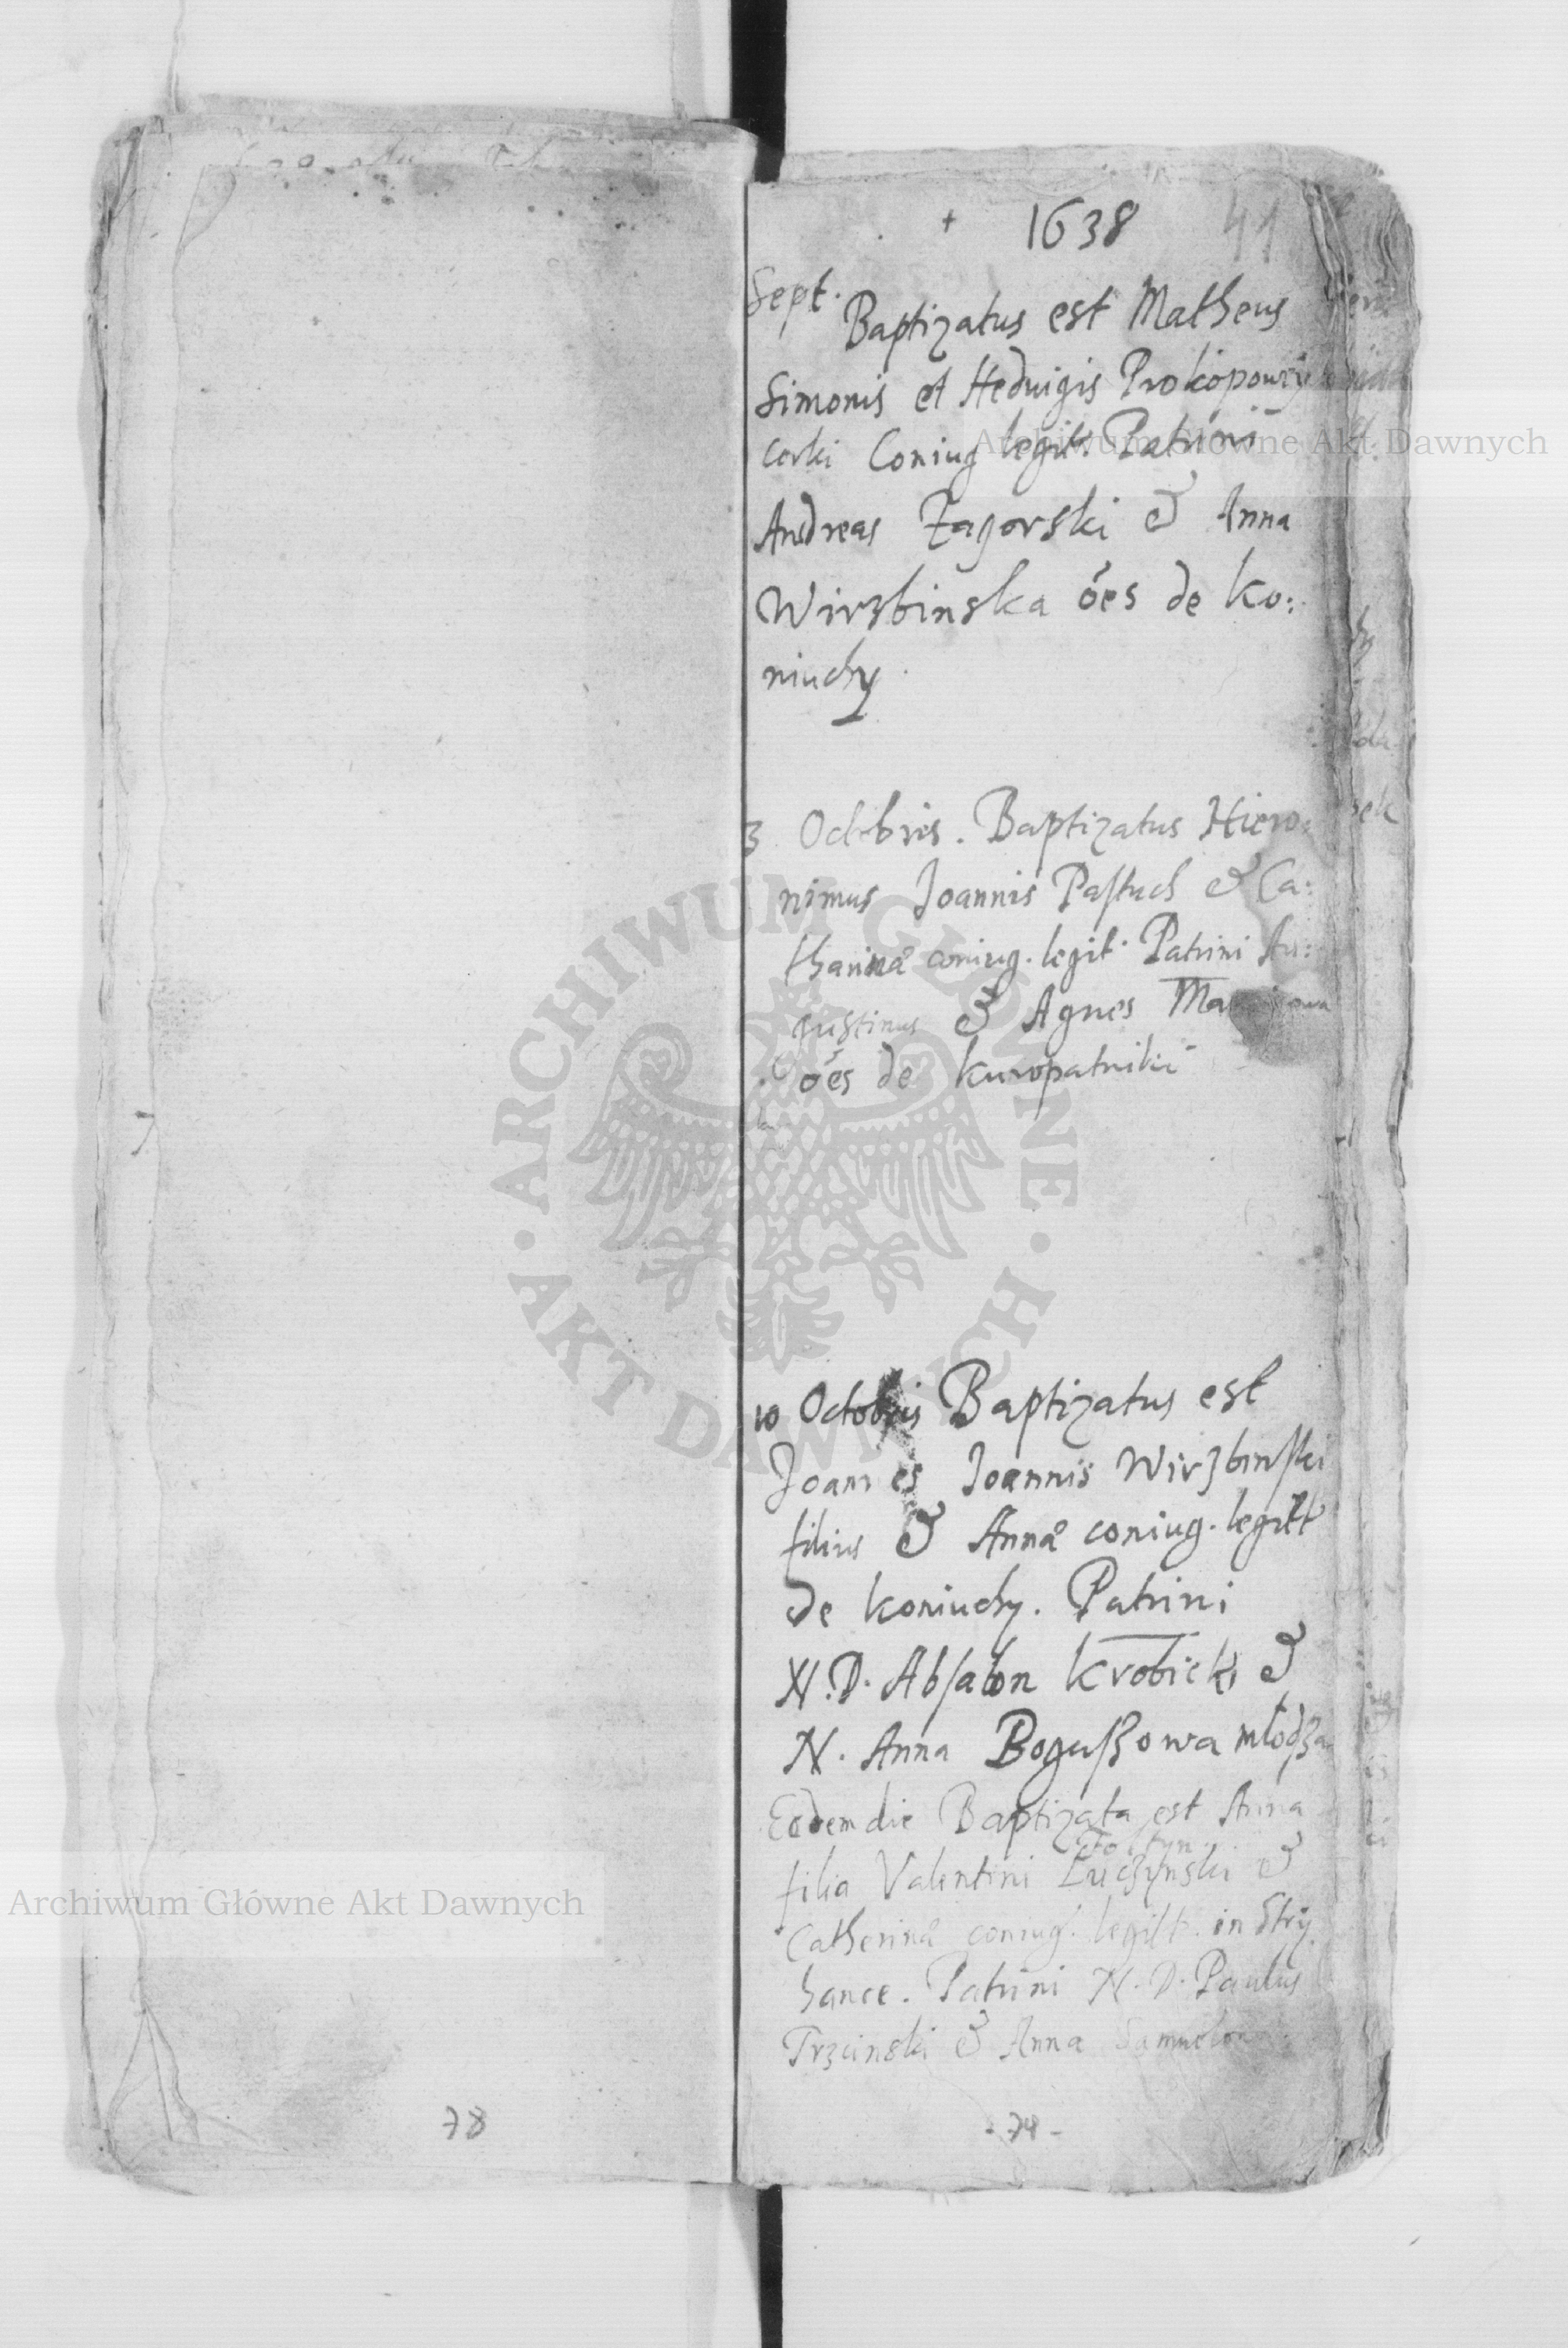 1638
41
Sept.
Baptizatus est Matheus
Simonis et Heduigis Prokopowy
corki Coniug legit. Patrini
Andreas Zagorski & Anna
Wirzbinska ões de Ko:
niuchy.
3 Octobris. Baptizatus Hiero:
nimus Joannis Pastuch & Ca:
tharinæ coniug. legit. Patrini Au:
gustinus & Agnes
ões de Kuropatniki
10 Octobris Baptizatus est
Joannes Joannis Wirzbinski
filius & Annæ coniug. legitt
de Koniuchy. Patrini
N. D. Absalon Krobicki &
N. Anna Boguszowa młodsza
Eodem die Baptizata est Anna
Foltyn
filia Valentini Łuczynski &
Catherinæ coniug. legitt. in Stry
hance. Patrini N. D. Paulus
Trzcinski & Anna
78
- 79 -
Archiwum Główne Akt Dawnych
ARCHIWUM GŁÓWNE · AKT DAWNYCH ·
Archiwum Główne Akt Dawnych